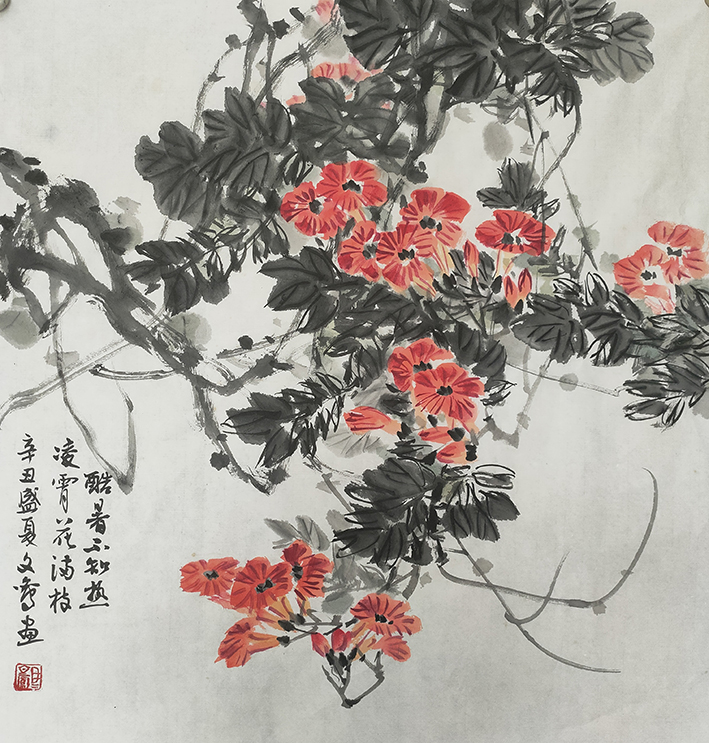 酷暑不知热
凌霄花满枝
辛丑盛夏文
画